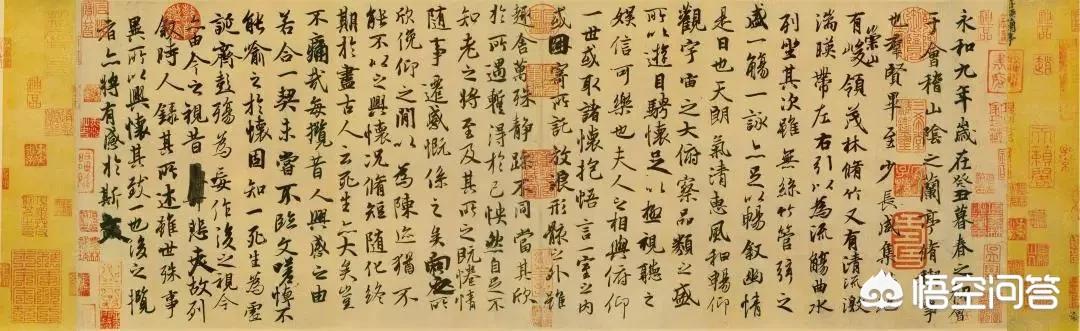 永和九年歲在癸丑暮春之初會
于會稽山陰之蘭亭脩禊事
也群賢畢至少長咸集此地
有崇山峻領茂林脩竹又有清流激
湍暎帶左右引以為流觴曲水
列坐其次雖無絲竹管弦之
盛一觴一詠亦足以暢敘幽情
是日也天朗氣清惠風和暢仰
觀宇宙之大俯察品類之盛
所以遊目騁懷足以極視聽之
娛信可樂也夫人之相與俯仰
一世或取諸懷抱悟言一室之內
或因寄所託放浪形骸之外雖
趣舍萬殊靜躁不同當其欣
於所遇蹔得於己怏然自足不
知老之將至及其所之既惓情
隨事遷感慨係之矣向之所
欣俛仰之閒以為陳迹猶不
能不以之興懷況脩短隨化終
期於盡古人云死生亦大矣豈
不痛哉每攬昔人興感之由
若合一契未嘗不臨文嗟悼不
能喻之於懷固知一死生為虛
誕齊彭殤為妄作後之視今
亦由今之視昔悲夫故列
敘時人錄其所述雖世殊事
異所以興懷其致一也後之攬
者亦將有感於斯文
悟空问答